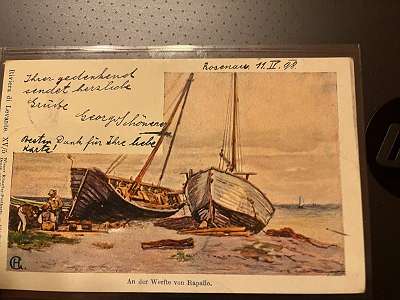 Rosenau 11. IV. 98
Ihrer gedenkend
sendet herzliche
Grüße
Georg Schönerer
Besten Dank für Ihre liebe
Karte
Riviera di Levante. XV/6
An der Werfte von Rapallo.